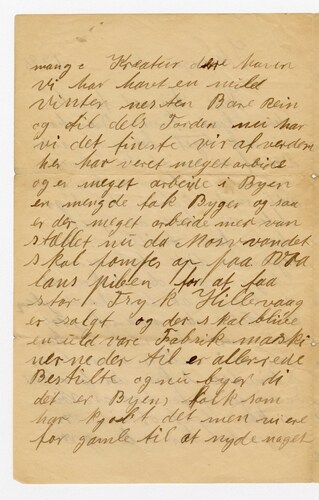 mange Kreatur dere haver
vi har havt en mild
vinter nesten Bare Rein
og til dels Torden nu har
vi det fineste vir af verden
her har veret meget arbeide
og er meget arbeide i Byen
en mengde tak Byger og saa
er der meget arbeide med van
stællet nu da Mosvandet
skal pompes op paa
lans piben for at faa
stort Tryk Hillevaag
er solgt og der skal blive
en uld vare Fabrik maski
nerne der til er allerede
Bestilte og nu byer di
det er Byens folk som
har kjøbt det men vi ere
for gamle til at nyde noget